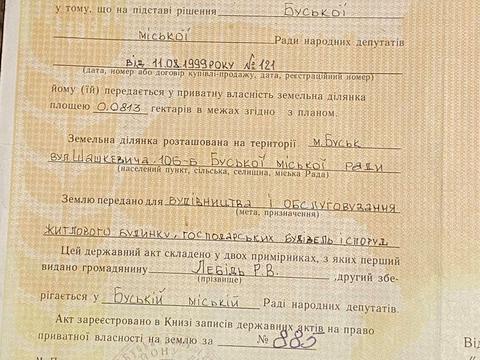 у тому, що на підставі рішення Буської
міської Ради народних депутатів
від 11.08.1999 року №121
(дата, номер або договір купівлі-продажу, дата, реєстраційний номер)
йому (їй) передається у приватну власність земельна ділянка
площею 0.0813 гектарів в межах згідно з планом.
Земельна ділянка розташована на території м.Буськ
вул.Шашкевича, 106-Б Буської міської ради
(населений пункт, сільська, селищна, міська Рада)
Землю передано для будівництва і обслуговування
(мета, призначення)
житлового будинку, господарських будівель і споруд
Цей державний акт складено у двох примірниках, з яких перший
видано громадянину Лебідь Р.В. ,другий збе-
(прізвище)
рігається у Буській міській Раді народних депутатів.
Акт зареєстровано в Книзі записів державних актів на право
приватної власності на землю за № 882
Ві